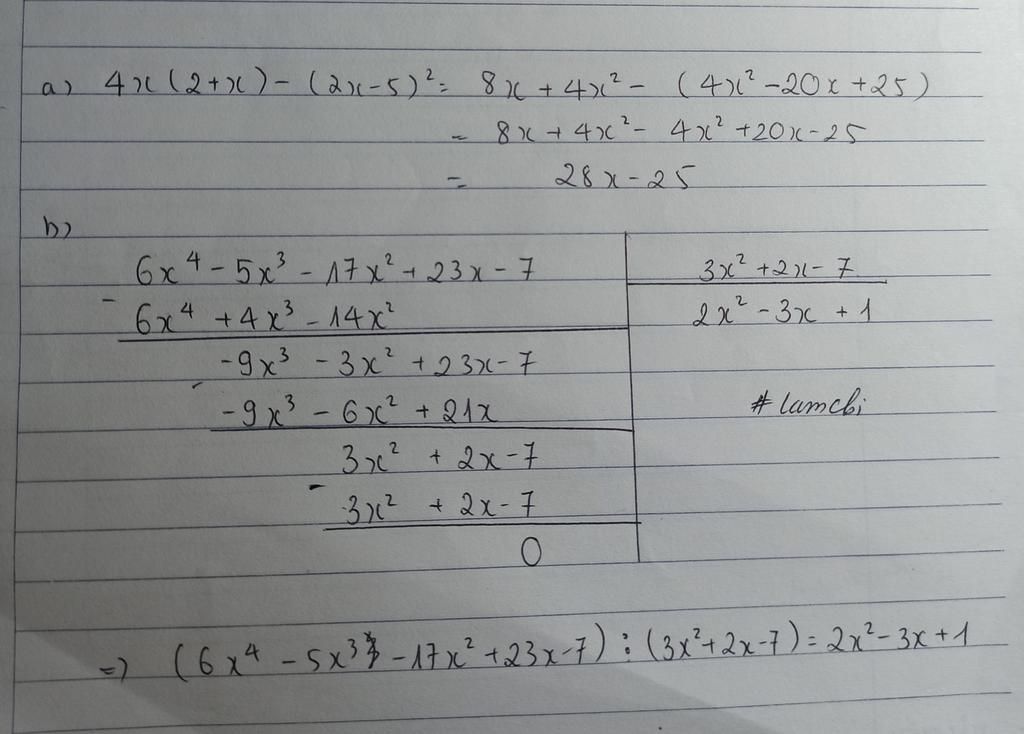 a) 4x(2+x) - (2x-5)² = 8x + 4x² - (4x² - 20x + 25)
= 8x + 4x² - 4x² + 20x - 25
= 28x - 25
b)
6x⁴ - 5x³ - 17x² + 23x - 7 | 3x² + 2x - 7
- 6x⁴ + 4x³ - 14x² | 2x² - 3x + 1
-9x³ - 3x² + 23x - 7
- -9x³ - 6x² + 21x | #lamchi
3x² + 2x - 7
- 3x² + 2x - 7
0
=> (6x⁴ - 5x³ - 17x² + 23x - 7) : (3x² + 2x - 7) = 2x² - 3x + 1